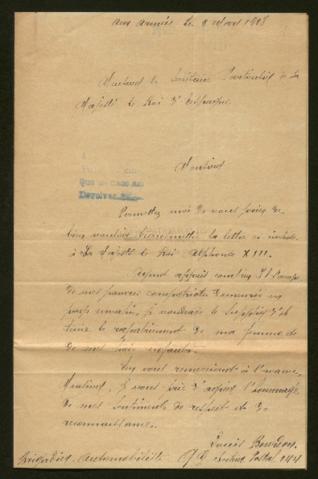 aux armées le 9 1918
Monsieur le Secrétaire Particulier de Sa
Majesté le Roi d'Espagne
Monsieur
Permettez moi de vous prier de
bien vouloir transmettre la lettre ci incluse
à Sa Majesté le Roi Alphonse XIII.
Ayant appris combien Il
de nos pauvres compatriotes demeurés en
pays envahis, je voudrais le supplier d'
le rapatriement de ma femme et
de nos trois enfants.
En vous remerciant à l'avance,
Monsieur, je vous prie d'agréer l'hommage
de mes sentiments de respect et de
reconnaissance.
Lucien
Brigadier automobiliste Secteur Postal 144
Que se
Devolver